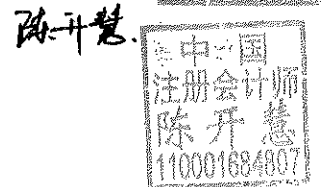 陈开慧.
中国
注册会计师
陈开慧
110001684807